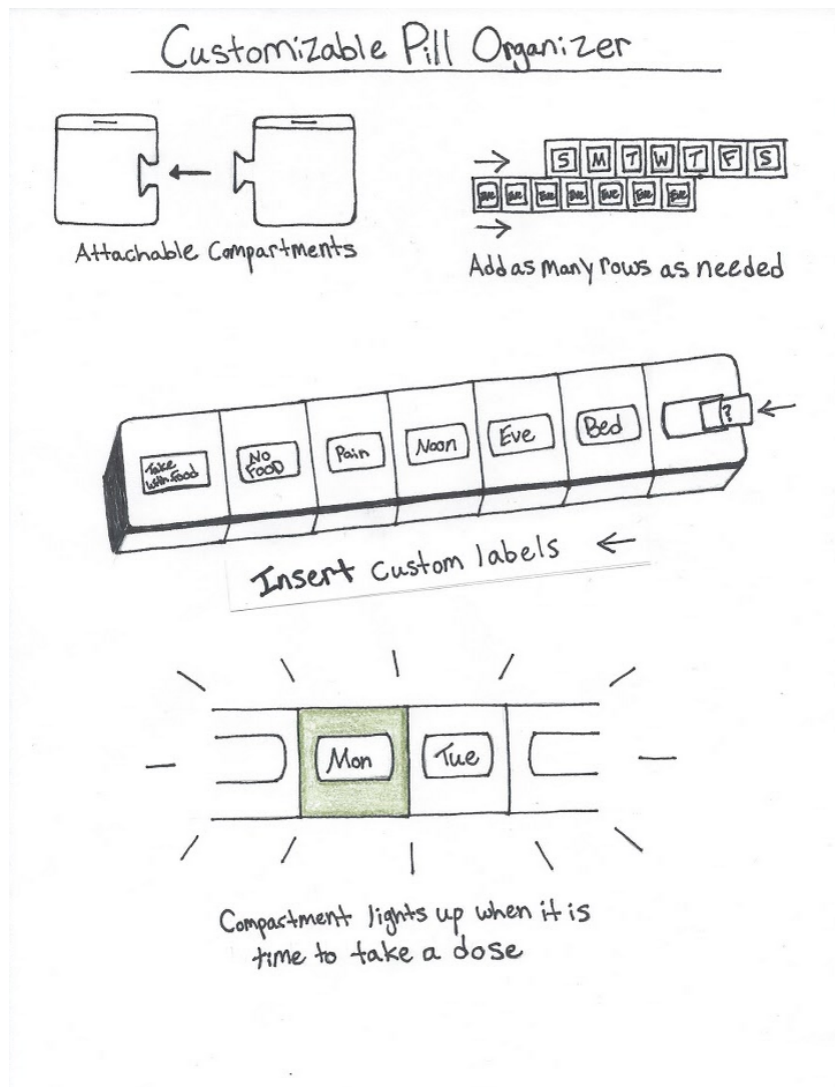 Customizable Pill Organizer
Attachable Compartments
S M T W T F S
Eve Eve Eve Eve Eve Eve Eve
Add as many rows as needed
Take
With Food
NO
FOOD
Pain
Noon
Eve
Bed
?
Insert Custom labels
Mon
Tue
Compartment lights up when it is
time to take a dose